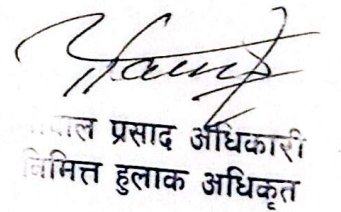 प्रसाद अधिकारी
निमित्त हुलाक अधिकृत